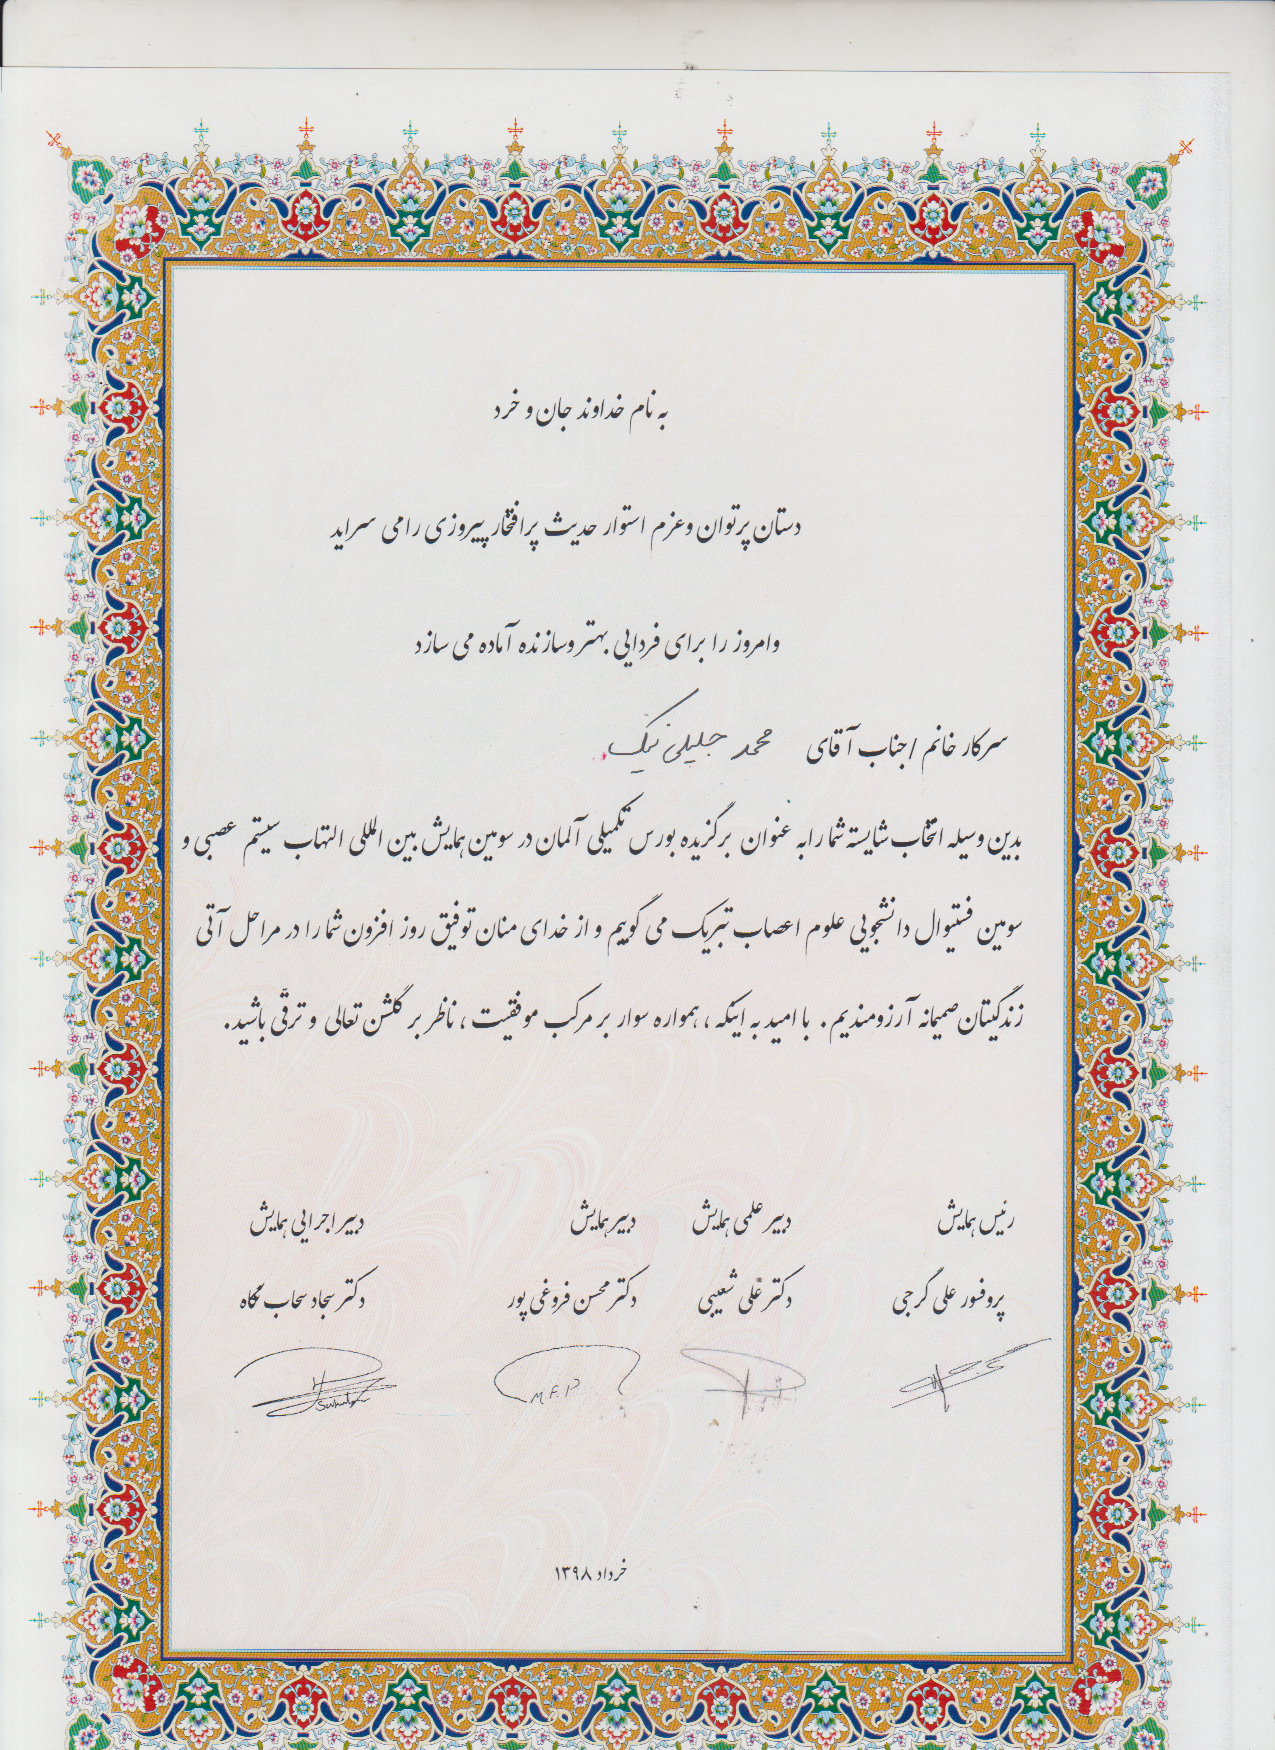 به نام خداوند جان و خرد
دستان پرتوان وعزم استوار حدیث پرافتخار پیروزی را می سراید
وامروز را برای فردایی بهتر وسازنده آماده می سازد
سرکار خانم / جناب آقای محمد جلیلی نیک
بدین وسیله انتخاب شایسته شما را به عنوان برگزیده بورس تکمیلی آلمان در سومین همایش بین المللی التهاب سیستم عصبی و
سومین فستیوال دانشجویی علوم اعصاب تبریک می گوییم و از خدای منان توفیق روز افزون شما را در مراحل آتی
زندگیتان صمیمانه آرزومندیم. با امید به اینکه، همواره سوار بر مرکب موفقیت، ناظر بر گلشن تعالی و ترقّی باشید.
رئیس همایش دبیر علمی همایش دبیر همایش دبیر اجرایی همایش
پروفسور علی گرجی دکتر علی شعیبی دکتر محسن فروغی پور دکتر سجاد سحاب نگاه
M.F.P
خرداد ۱۳۹۸